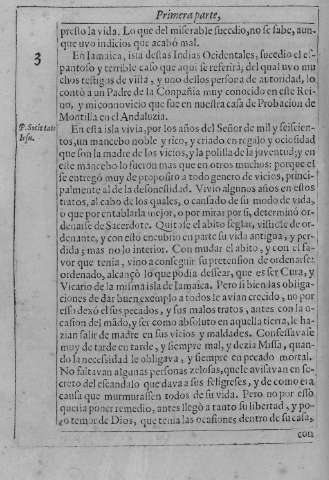 Primera parte,
presto la vida. Lo que del miserable sucedio, no se sabe, aun-
que uvo indicios que acabó mal.
3
En Iamaica, isla destas Indias Ocidentales, sucedio el es-
pantoso y terrible caso que aqui se referirá, del qual uvo mu
chos testigos de vista, y uno dellos persona de autoridad, lo
contó a un Padre de la Conpañia muy conocido en este Rei-
no, y mi connovicio que fue en nuestra casa de Probacion de
Montilla en el Andaluzia.
En esta isla vivia, por los años del Señor de mil y seiscien-
tos, un mancebo noble y rico, y criado en regalo y ociosidad
que son la madre de los vicios, y la polilla de la juventud, y en
este mancebo lo fueron mas que en otros muchos: porque el
se entregó muy de proposito a todo genero de vicios, princi-
palmente al de la desonestidad. Vivio algunos años en estos
tratos, al cabo de los quales, o cansado de su modo de vida,
o que por entablarla mejor, o por mirar por si, determinó or-
denarse de Sacerdote. Quitose el abito seglar, vistiose de or-
denante, y con esto encubrio en parte su vida antigua, y per-
dida; mas no lo interior. Con mudar el abito, y con el fa-
vor que tenia, vino a conseguir su pretension de ordenarse:
ordenado, alcançó lo que podia dessear, que es ser Cura, y
Vicario de la misma isla de Iamaica. Pero si bien las obliga-
ciones de dar buen exemplo a todos le avian crecido, no por
esso dexó el sus pecados, y sus malos tratos, antes con la o-
casion del mãdo, y ser como absoluto en aquella tierra, le ha-
zian salir de madre en sus vicios y maldades. Confessavase
muy de tarde en tarde, y siempre mal, y dezia Missa, quan-
do la necessidad le obligava, y siempre en pecado mortal.
No faltavan algunas personas zelosas, que le avisavan en se-
creto del escandalo que dava a sus feligreses, y de como era
causa que murmurassen todos de su vida. Pero no por esso
queria poner remedio, antes llegò a tanto su libertad, y po-
co temor de Dios, que tenia las ocasiones dentro de su casa,
con
P. Societate
Iesu.